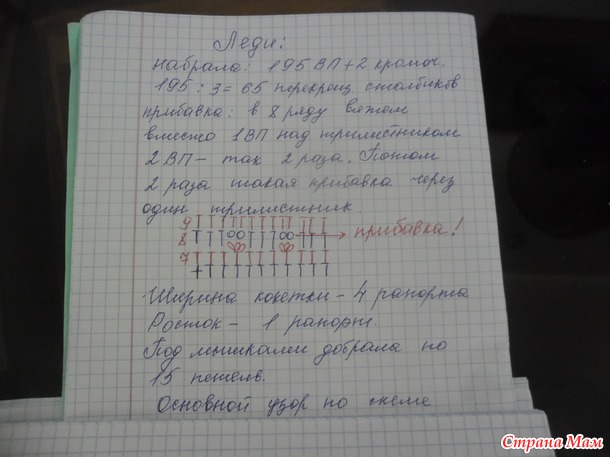 Леди:
набрала: 195 ВП + 2 кромоч.
195 : 3 = 65 перекрещ. столбиков
прибавка: в 8 ряду вяжем
вместо 1ВП над трилистником
2 ВП – так 2 раза. Потом
2 раза такая прибавка через
один трилистник.
9
8 → прибавка!
7
Ширина кокетки – 4 рапорта
Росток – 1 рапорт.
Под мышками добрала по
15 петель.
Основной узор по схеме
Страна Мам